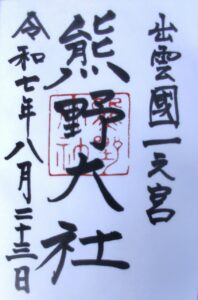 出雲國一之宮
熊野大社
令和七年八月二十三日